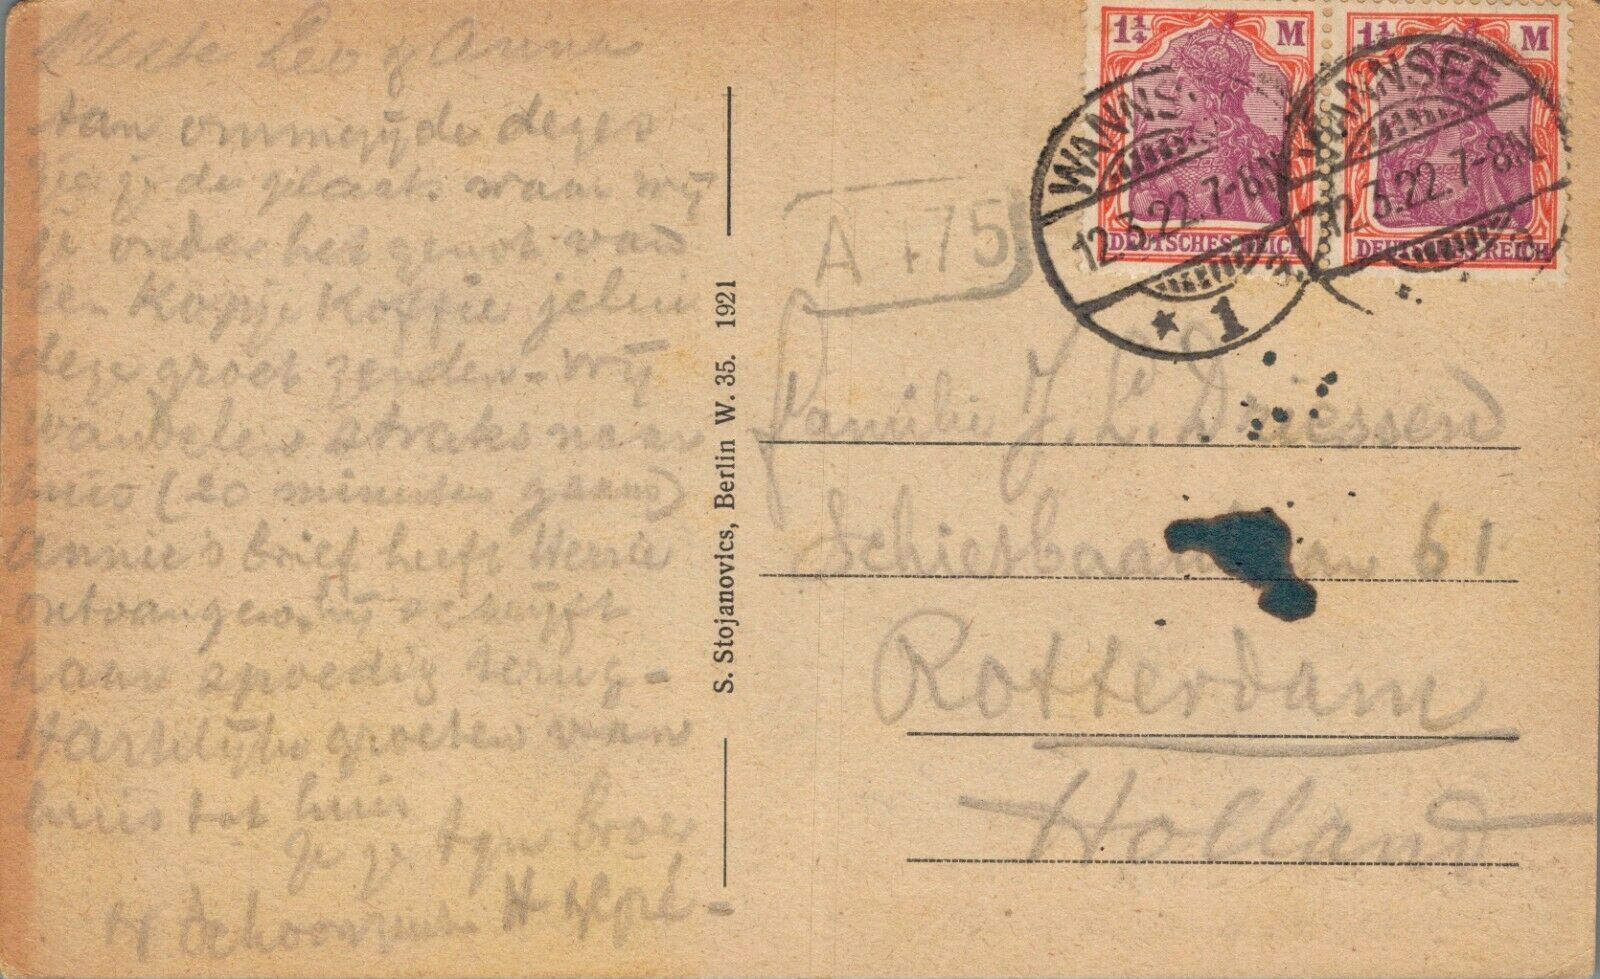 Leo & Anna
Aan ommezijde dezes
zie je de plaats waar wij
onder het genot van
een Kopje Koffie jelui
deze groet zenden. Wij
wandelen straks naar
huis (20 minuten gaans)
Annie's brief heeft Henie
ontvangen. hij schrijft
haar spoedig terug.-
Hartelijke groeten van
huis tot huis
Je je broer
H
S. Stojanovics, Berlin W. 35. 1921
1¼ M
DEUTSCHES REICH
1¼ M
DEUTSCHES REICH
WANNSEE
12.3.22.7-8N
* 1
WANNSEE
12.3.22.7-8N
A 175
Familie J. L. Driessen
Schiebaanlaan 61
Rotterdam
Holland